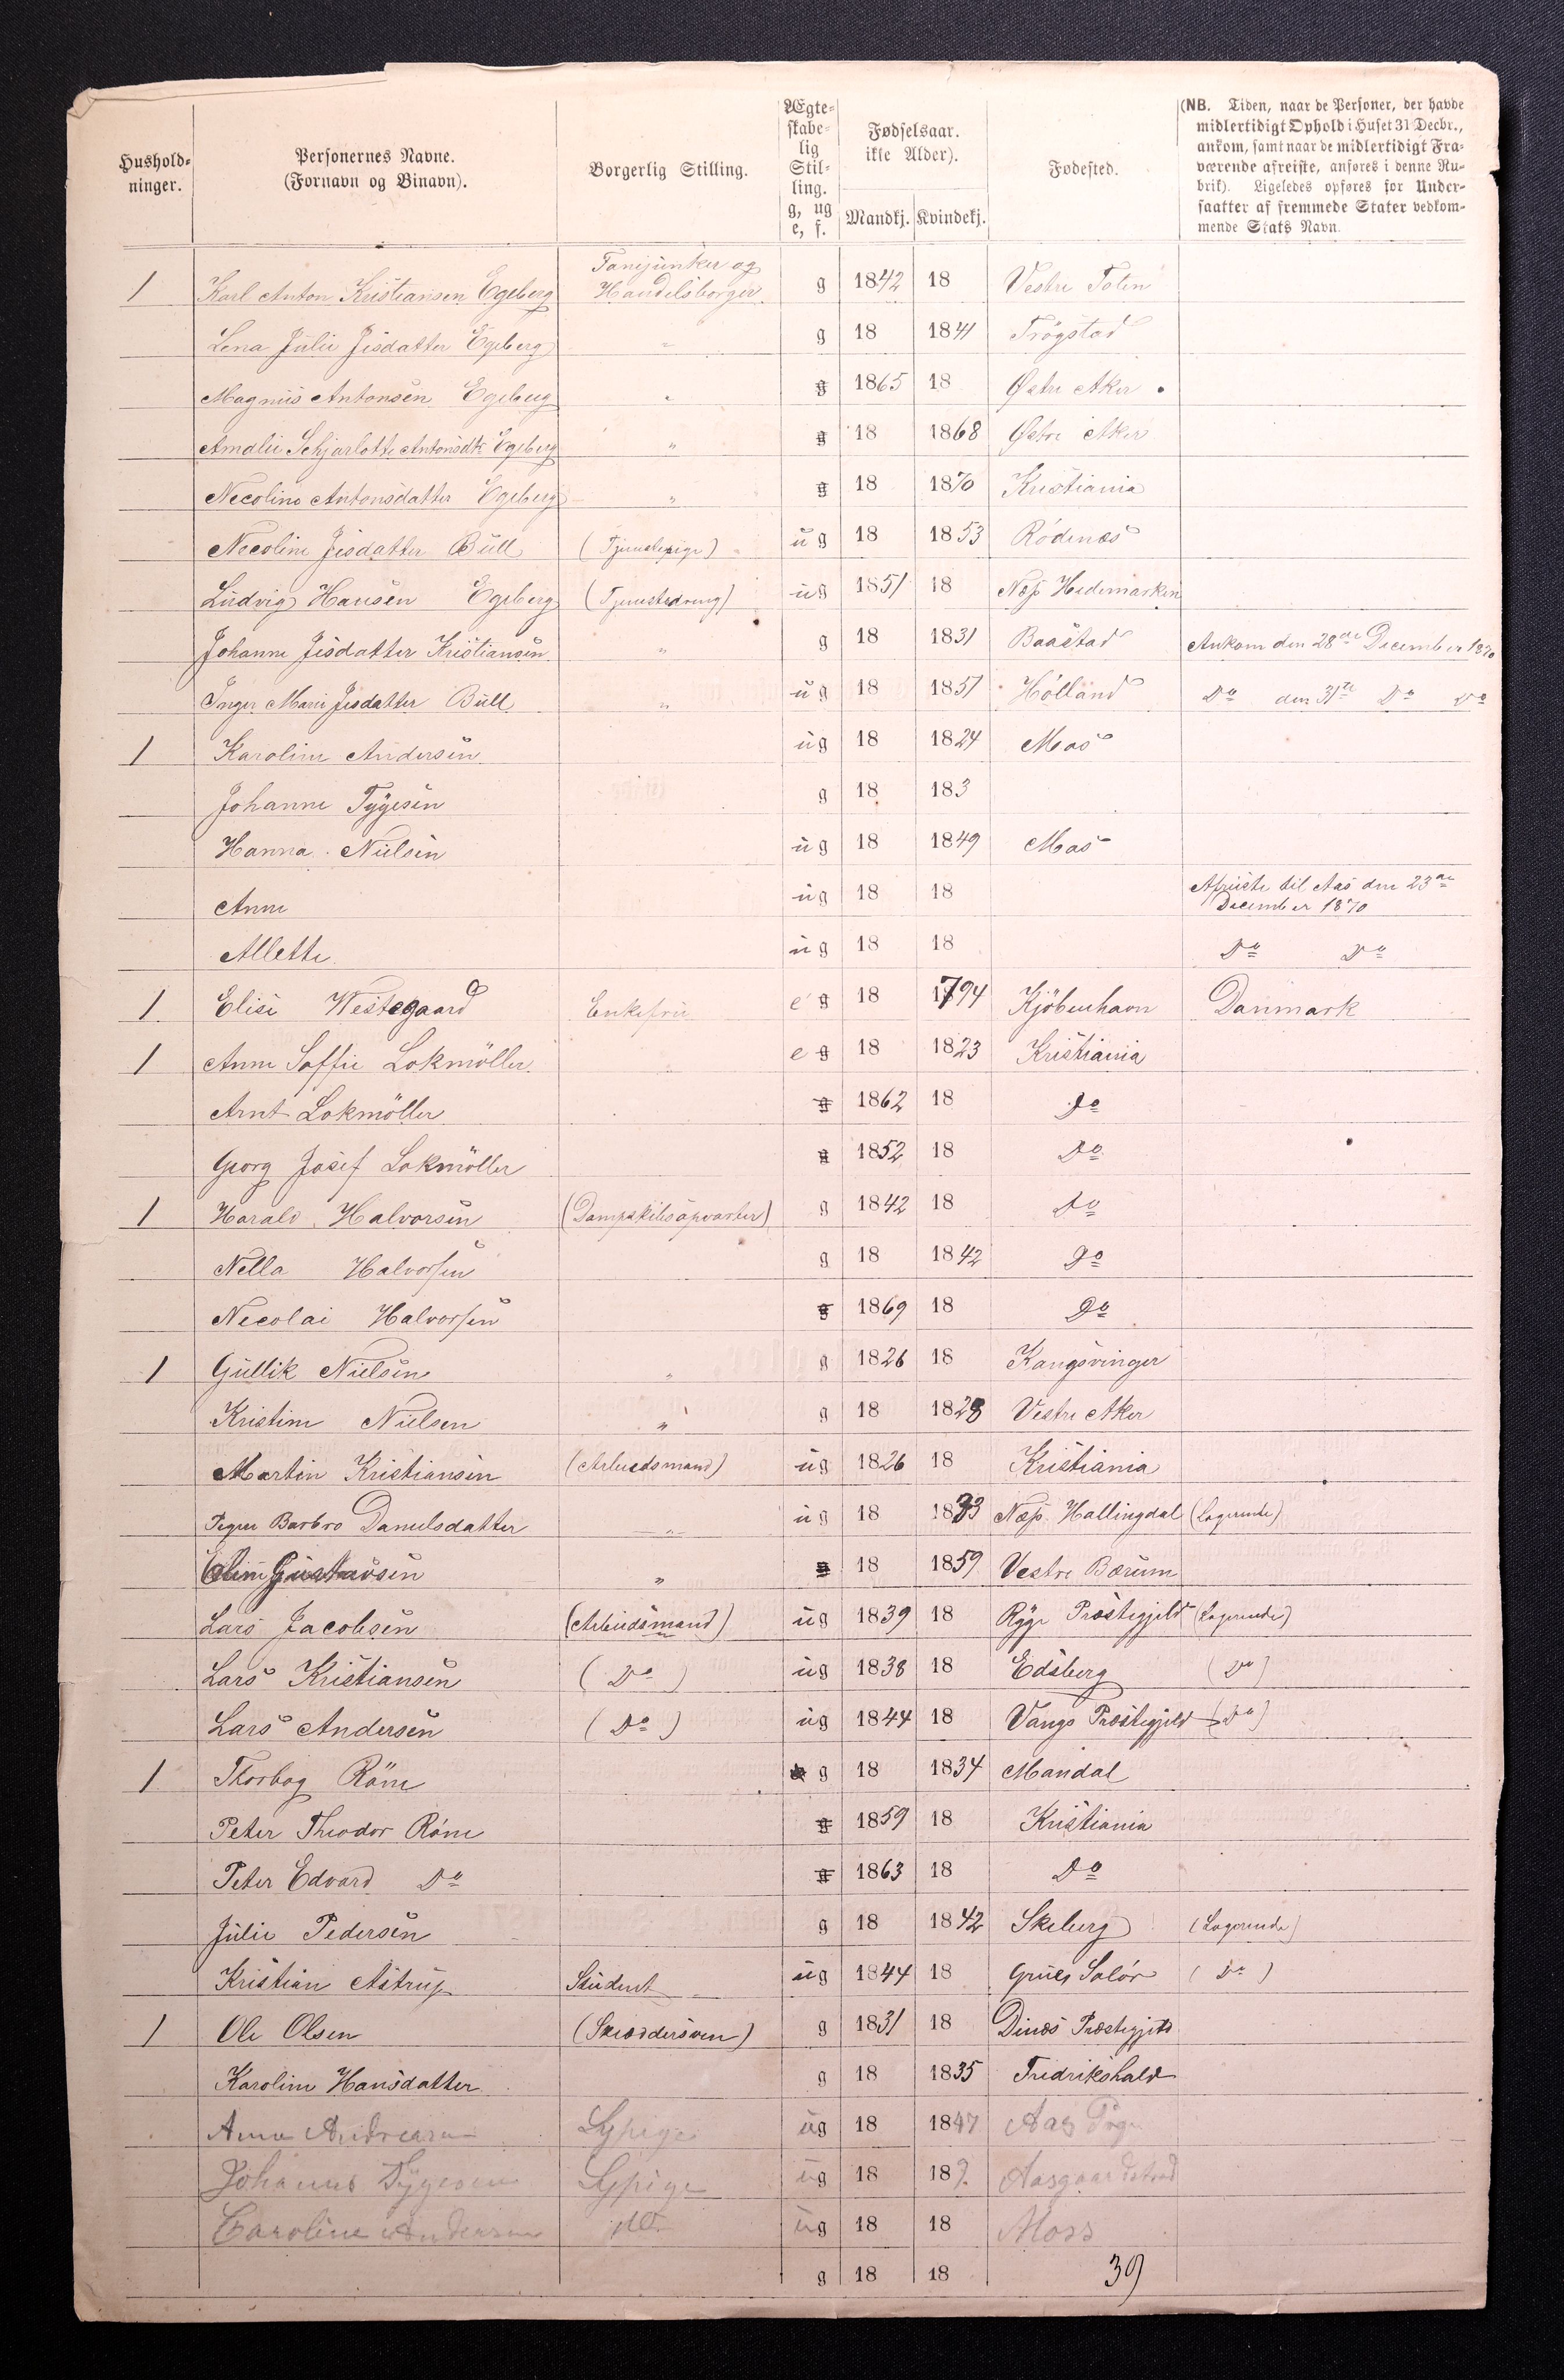 Hushold-
ninger.
Personernes Navne.
(Fornavn og Binavn).
Borgerlig Stilling.
Ægte-
skabe-
lig
Stil-
ling.
g, ug
e, f.
Fødselsaar.
ikke Alder).
Mandkj. Kvindekj.
Fødested.
(NB. Tiden, naar de Personer, der havde
midlertidigt Ophold i Huset 31 Decbr.,
ankom, samt naar de midlertidigt Fra-
værende afreiste, anføres i denne Ru-
brik). Ligeledes opføres for Under-
saatter af fremmede Stater vedkom-
mende Stats Navn.
1 Karl Anton Kristiansen Egeberg og Handelsborger g 1842 18 Vestre Toten
Lena Julie Jisdatter Egeberg " g 18 1841 Trögstad
Magnus Antonsen Egeberg " g 1865 18 Østre Aker
Amalie Schjarlotte Antonsdtr Egeberg " g 18 1868 Østre Aker
Necoline Antonsdatter Egeberg " g 18 1870 Kristiania
Necoline Jisdatter Bull (Tjenestepige) ug 18 1853 Rödenæs
Ludvig Hansen Egeberg (Tjenestedreng) ug 1851 18 Næs Hedemarken
Johanne Jisdatter Kristiansen " g 18 1831 Baastad Ankom den 28de December 1870
Inger Marie Jisdatter Bull " ug 18 1851 Hölland Do den 31te Do Do
1 Karoline Andersen ug 18 1824 Mos
Johanne Tygesen g 18 183
Hanna Nielsen ug 18 1849 Mos
Anne ug 18 18 Afreiste til Aas den 23de
December 1870
Allette ug 18 18 Do Do
1 Elise Westegaard Enkefru e g 18 1794 Kjöbenhavn Danmark
1 Anne Soffie Lokmöller e g 18 1823 Kristiania
Arnt Lokmöller g 1862 18 Do
Georg Josef Lokmöller g 1852 18 Do
1 Harald Halvorsen (Dampskibsopvarter) g 1842 18 Do
Nella Halvorsen g 18 1842 Do
Necolai Halvorsen g 1869 18 Do
1 Gullik Nielsen " g 1826 18 Kongsvinger
Kristine Nielsen " g 18 1828 Vestre Aker
Martin Kristiansen (Arbeidsmand) ug 1826 18 Kristiania
Barbro Danielsdatter " ug 18 1833 Næs Hallingdal (Logerende)
Gustavsen " 18 1859 Vestre Bærum
Lars Jacobsen (Arbeidsmand) ug 1839 18 Ryge Præstegjeld (Logerende)
Lars Kristiansen (Do) ug 1838 18 Edsberg (Do)
Lars Andersen (Do) ug 1844 18 Vangs Præstegjeld (Do)
1 Thorbog Röne g 18 1834 Mandal
Peter Theodor Röne g 1859 18 Kristiania
Peter Edvard Do g 1863 18 Do
Julie Pedersen g 18 1842 Skeberg (Logerende)
Kristian Astrup Student ug 1844 18 Grues Solör (Do)
1 Ole Olsen (Skræddersven) g 1831 18 Dines Præstegjeld
Karoline Hansdatter g 18 1835 Fredrikshald
Anne Andreasen Sypige ug 18 1847 Aas
Johanne Tygesen Sypige ug 18 18
Caroline Andersen do ug 18 18 Moss
g 18 18 39